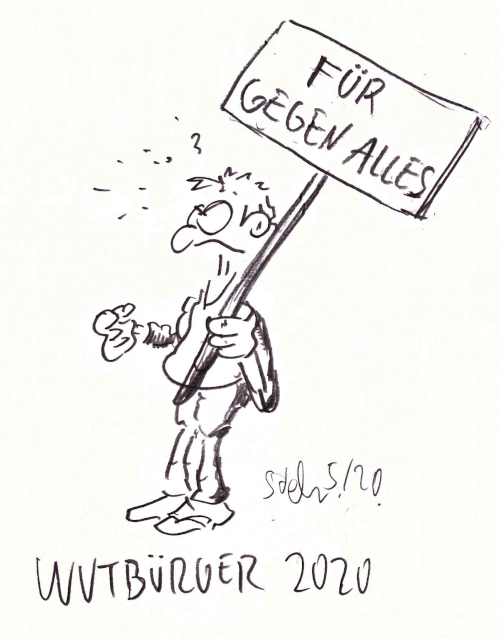 FÜR
GEGEN ALLES
?
5/20
WUTBÜRGER 2020